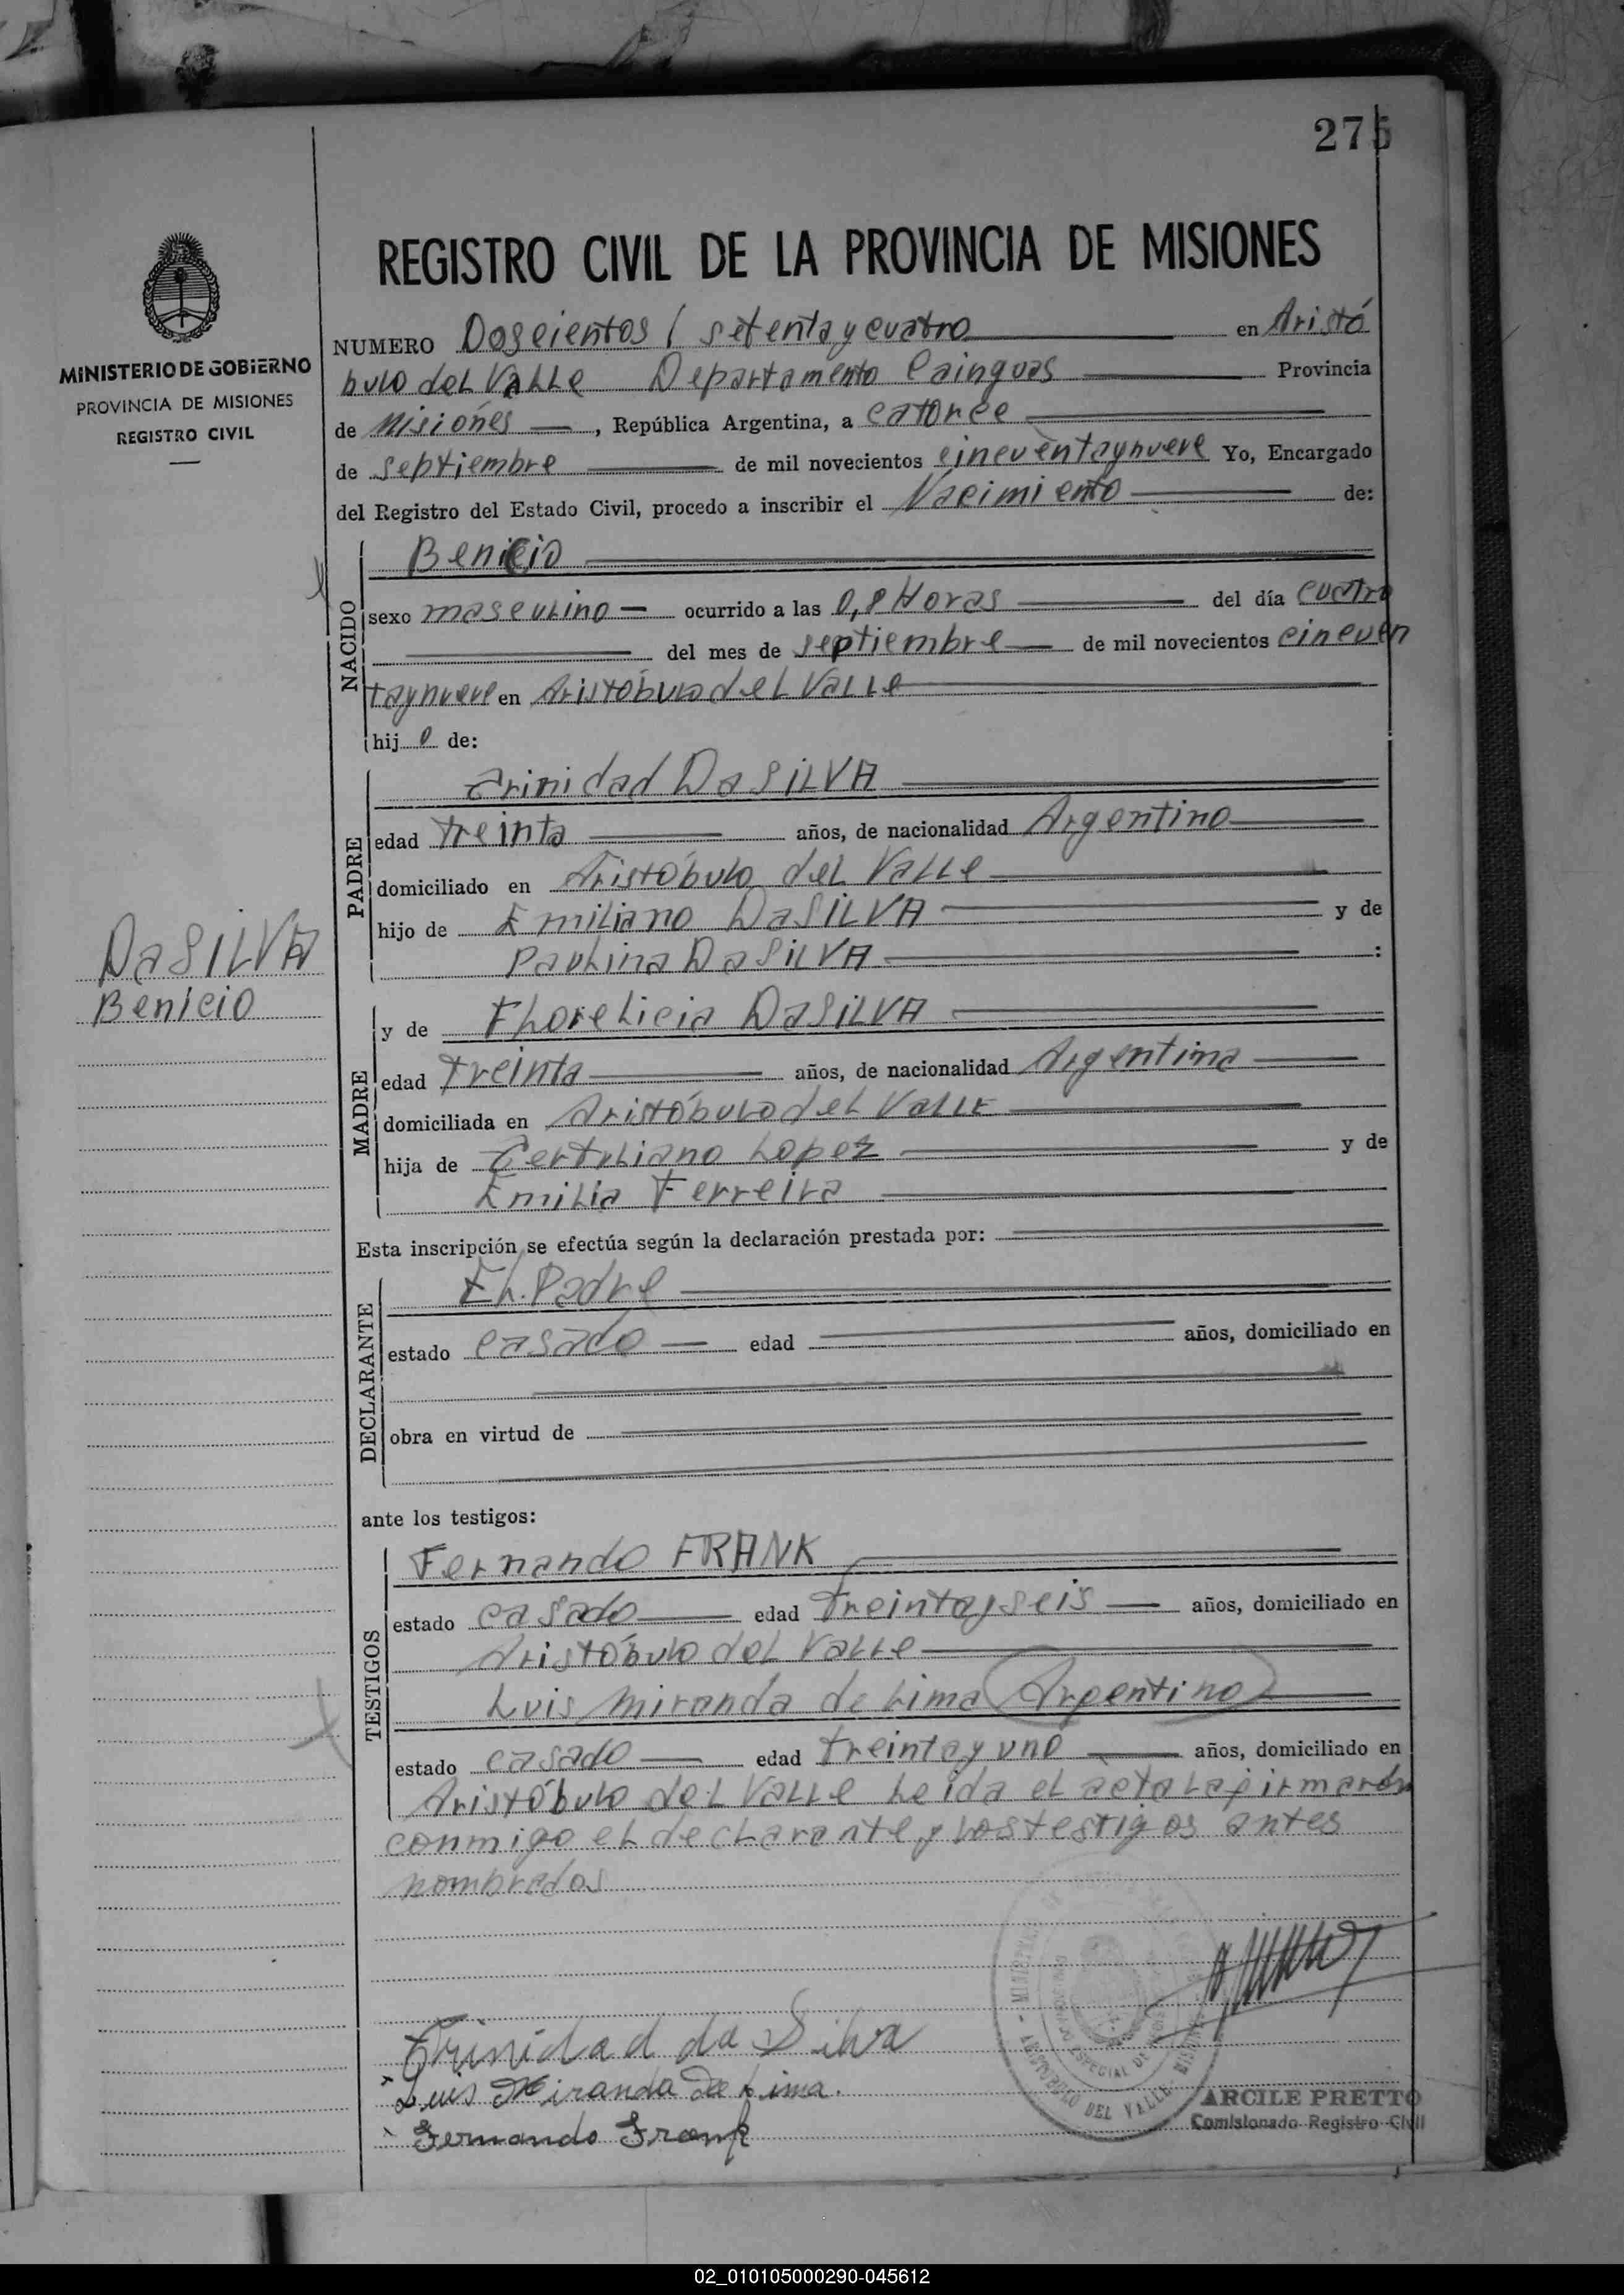 275
REGISTRO CIVIL DE LA PROVINCIA DE MISIONES
MINISTERIO DE GOBIERNO
PROVINCIA DE MISIONES
REGISTRO CIVIL
NUMERO Doscientos / setenta y cuatro en Aristó
bulo del Valle Departamento Cainguas Provincia
de Misiones, República Argentina, a catorce
de septiembre de mil novecientos cincuentaynueve Yo, Encargado
del Registro del Estado Civil, procedo a inscribir el Nacimiento de:
NACIDO
Benicio
sexo masculino ocurrido a las 0,8 Horas del día cuatro
del mes de septiembre de mil novecientos cincuen
taynueve en Aristóbulo del Valle
hijo de:
PADRE
Trinidad DaSILVA
edad treinta años, de nacionalidad Argentino
domiciliado en Aristóbulo del Valle
hijo de Emiliano DaSILVA y de
Paulina DaSILVA :
DaSILVA
Benicio
MADRE
y de Florelicia DaSILVA
edad treinta años, de nacionalidad Argentina
domiciliada en Aristóbulo del Valle
hija de Tertuliano Lopez y de
Emilia Ferreira
Esta inscripción se efectúa según la declaración prestada por:
DECLARANTE
El Padre
estado casado edad años, domiciliado en
obra en virtud de
ante los testigos:
TESTIGOS
Fernando FRANK
estado casado edad treintayseis años, domiciliado en
Aristóbulo del Valle
Luis Miranda de Lima (Argentino)
estado casado edad treintayuno años, domiciliado en
Aristóbulo del Valle Leida el acta la firmaron
conmigo el declarante y los testigos antes
nombrados
Trinidad da Silva
Luis Miranda De Lima.
Fernando Frank
ARISTOBULO DEL VALLE - MISIONES
ARCILE PRETTO
Comisionado Registro Civil
02_010105000290-045612